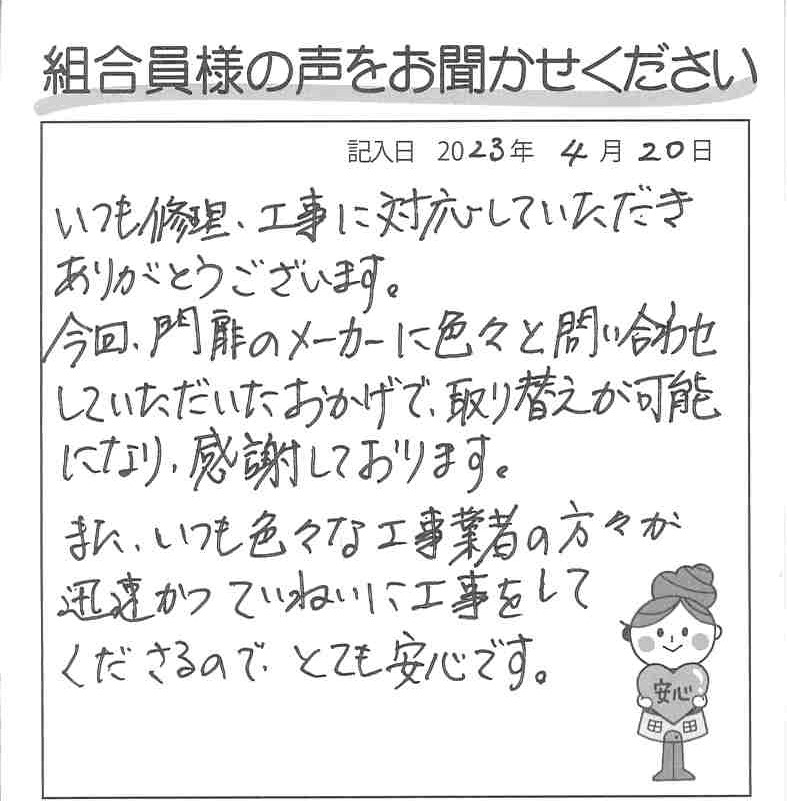 組合員様の声をお聞かせください
記入日 2023年 4月20日
いつも修理、工事に対応していただき
ありがとうございます。
今回、門扉のメーカーに色々と問い合わせ
していただいたおかげで、取り替えが可能
になり、感謝しております。
また、いつも色々な工事業者の方々が
迅速かつていねいに工事をして
くださるので、とても安心です。
安心